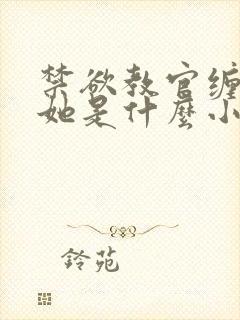 禁欲教官缠
她是什麼小
鈴苑